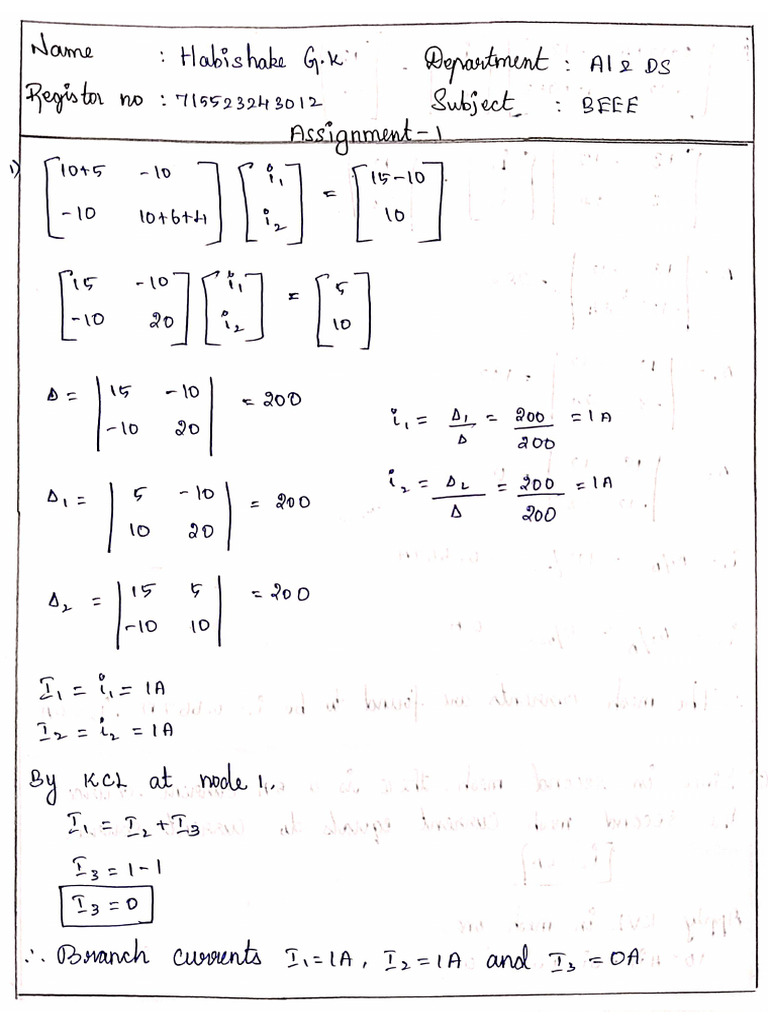 Name : Habishake G.K Department : AI & DS
Registor no : 715523243012 Subject : BEEE
Assignment-1
1) [10+5 -10 [i₁ = [15-10
-10 10+6+4] i₂] 10]
[15 -10 [i₁ = [5
-10 20] i₂] 10]
Δ = |15 -10| = 200
|-10 20|
i₁ = Δ₁/Δ = 200/200 = 1A
Δ₁ = |5 -10| = 200
|10 20|
i₂ = Δ₂/Δ = 200/200 = 1A
Δ₂ = |15 5| = 200
|-10 10|
I₁ = i₁ = 1A
I₂ = i₂ = 1A
By KCL at node 1,
I₁ = I₂ + I₃
I₃ = 1-1
I₃ = 0
∴ Branch currents I₁=1A, I₂=1A and I₃=0A